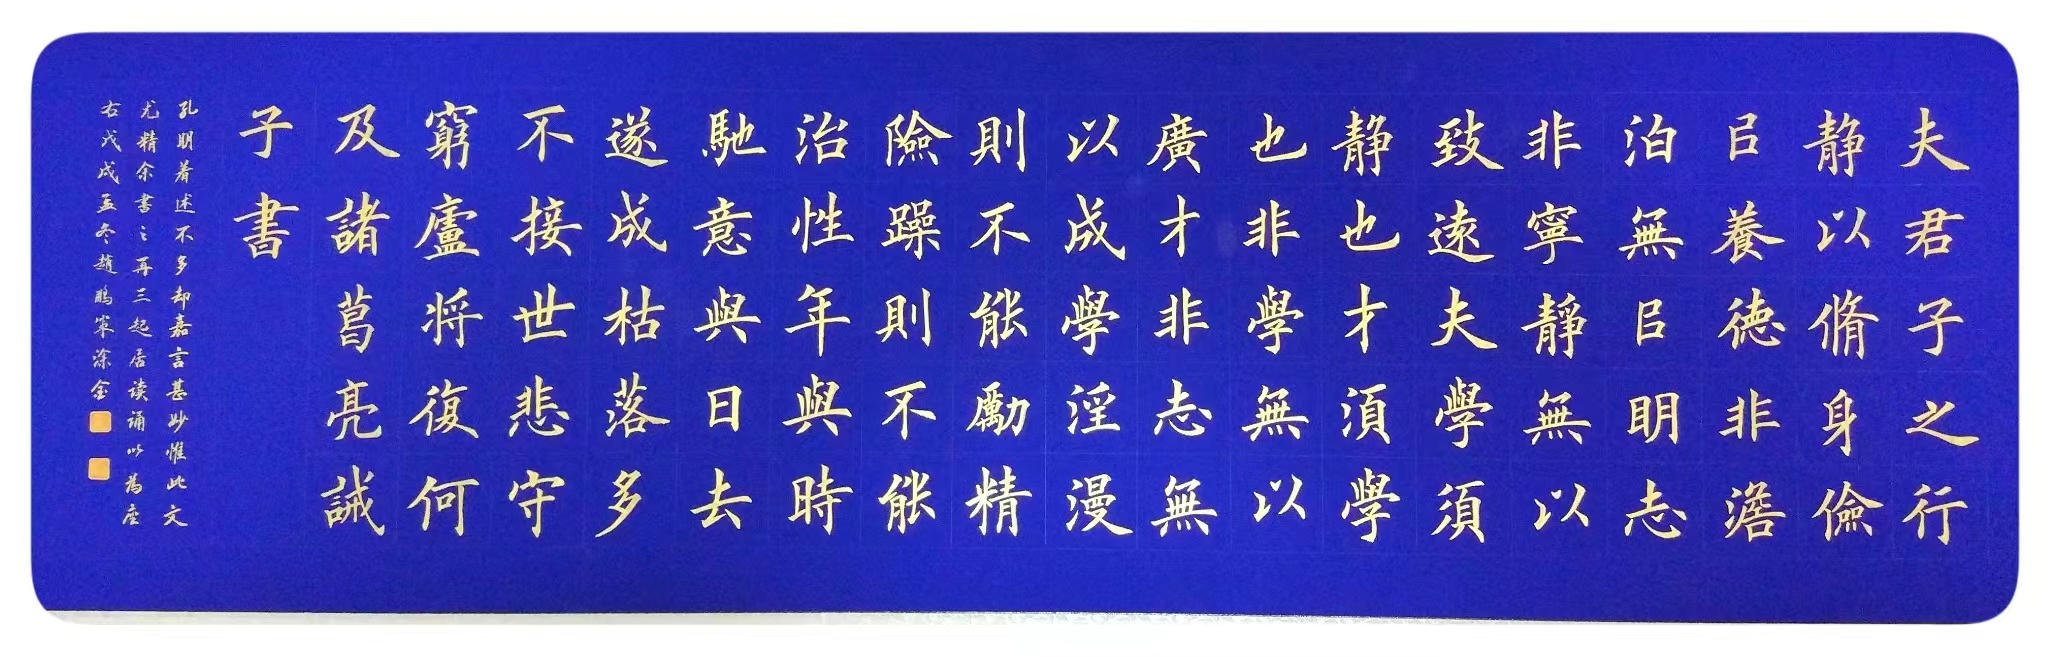 夫君子之行
静以脩身儉
㠯養徳非澹
泊無㠯明志
非寧靜無以
致遠夫學須
静也才須學
也非學無以
廣才非志無
以成學淫漫
則不能勵精
險躁則不能
治性年與時
馳意與日去
遂成枯落多
不接世悲守
窮廬将復何
及諸葛亮誡
子書
孔明着述不多却嘉言甚妙惟此文
尤精余書之再三起居读诵以為座
右戊戌孟冬趙鵬涂金